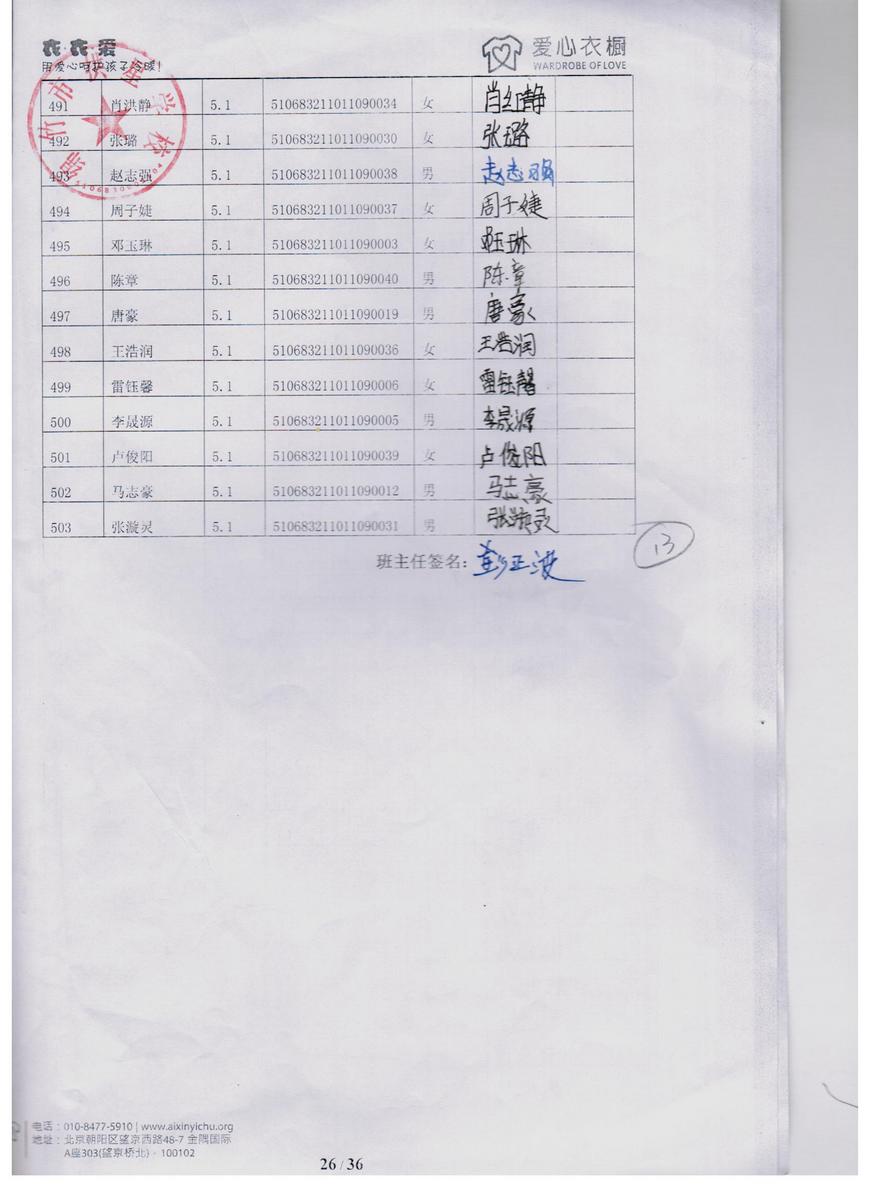 衣·衣·爱
用爱心呵护孩子冷暖!
爱心衣橱
WARDROBE OF LOVE
491 肖洪静 5.1 510683211011090034 女 肖红静
492 张璐 5.1 510683211011090030 女 张璐
493 赵志强 5.1 510683211011090038 男 赵志强
494 周子婕 5.1 510683211011090037 女 周子婕
495 邓玉琳 5.1 510683211011090003 女 邓玉琳
496 陈章 5.1 510683211011090040 男 陈章
497 唐豪 5.1 510683211011090019 男 唐豪
498 王浩润 5.1 510683211011090036 女 王浩润
499 雷钰馨 5.1 510683211011090006 女 雷钰馨
500 李晟源 5.1 510683211011090005 男 李晟源
501 卢俊阳 5.1 510683211011090039 女 卢俊阳
502 马志豪 5.1 510683211011090012 男 马志豪
503 张漩灵 5.1 510683211011090031 男 张漩灵
13
班主任签名: 彭正波
电话: 010-8477-5910 | www.aixinyichu.org
地址: 北京朝阳区望京西路48-7 金隅国际
A座303(望京桥北) · 100102
26 / 36